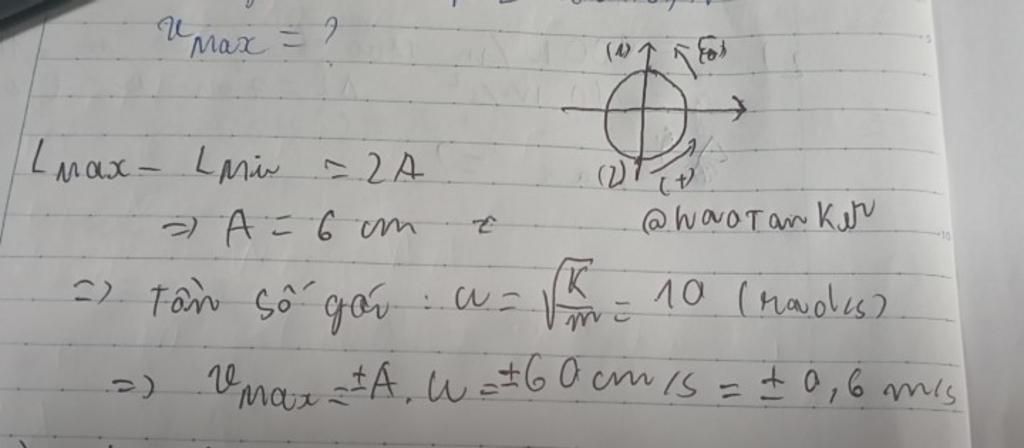 v_Max = ?
(1)
(2)
(+)
L_Max - L_Min = 2A
=> A = 6 cm
@WaoTanKứ
=> tần số góc : ω = √(K/m) = 10 (rad/s)
=> v_Max = ±A.ω = ±60 cm/s = ±0,6 m/s